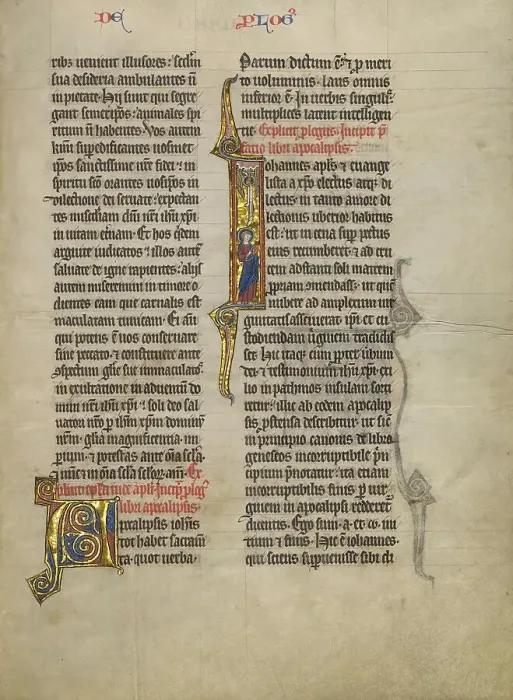 DE PLOG᷒
ribꝫ uenient illusores: scdm̄
sua desideria ambulantes n̄
in pietate. Hij sunt qui segre
gant semetip̄os: animales spi
ritum n̄ habentes. Vos autem
kmi sup̄edificantes uosmet
ip̄os sanctissime ur̄e fidei: in
spiritu sc̄o orantes uosip̄os in
dilectione dei seruate: expectan
tes misc̄diam dn̄i nr̄i ihū xp̄i
in uitam et̄nam. Et hos q̄dem
arguite iudicatos: illos aut̄
saluate de igne rapientes: alijs
autem miseremini in timore o
dientes eam que carnalis est
maculatam tunicam. Ei aut̄
qui potens ē uos conseruare
sine peccato: & constituere ante
ↄspectum gl̄ie sue inmaculatos
in exultatione in aduentū do
mini nr̄i ihū xp̄i: soli deo sal
uatori nr̄o p̄ ihm̄ xp̄m dominū
nr̄m. glīa magnificentia. im
perium. & potestas ante oīa scl̄a.
& nunc & in oīa scl̄a scl̄oꝝ. am̄. Ex
plicit ep̄la iude apl̄i. Incip̄ p̄log᷒
libri apocalipsis.
Apocalipsis ioh̄is
tot habet sacram̄
ta. quot uerba.
Parum dictum ē: & p̄ meri
to uoluminis. laus omnis
inferior ē. In uerbis singul̄
multiplices latent intelligen
tie. Explicit p̄logus. Incipit p̄
fatio libri apocalipsis.
Iohannes apl̄s & euange
lista a xp̄o electus atqꝫ di
lectus. in tanto amore di
lectionis uberior habitus
est: ut in cena sup̄ pectus
eius recumberet: & ad cru
cem adstanti soli matrem
p̄priam ↄmendass&: ut quē
nubere ad amplexum uir
ginitatis asciuerat. ip̄i et cu
stodiendam uirginem tradidis
set. Hic itaqꝫ cum p̄pter ūbum
dei & testimoniū ihū xp̄i. exi
lio in pathmos insulam sorti
retur: illic ab eodem apocalip
sis p̄ostensa describitur. ut sic̄
in principio canonis id ē libro
geneseos incorruptibile p̄in
cipium p̄notatur: ita etiam
incorruptibilis finis. p̄ uir
ginem in apocalipsi redderet᷑
dicentis. Ego sum .a. et .ω. ini
tium & finis. Hic ē iohannes.
qui sciens sup̄uenisse sibi di